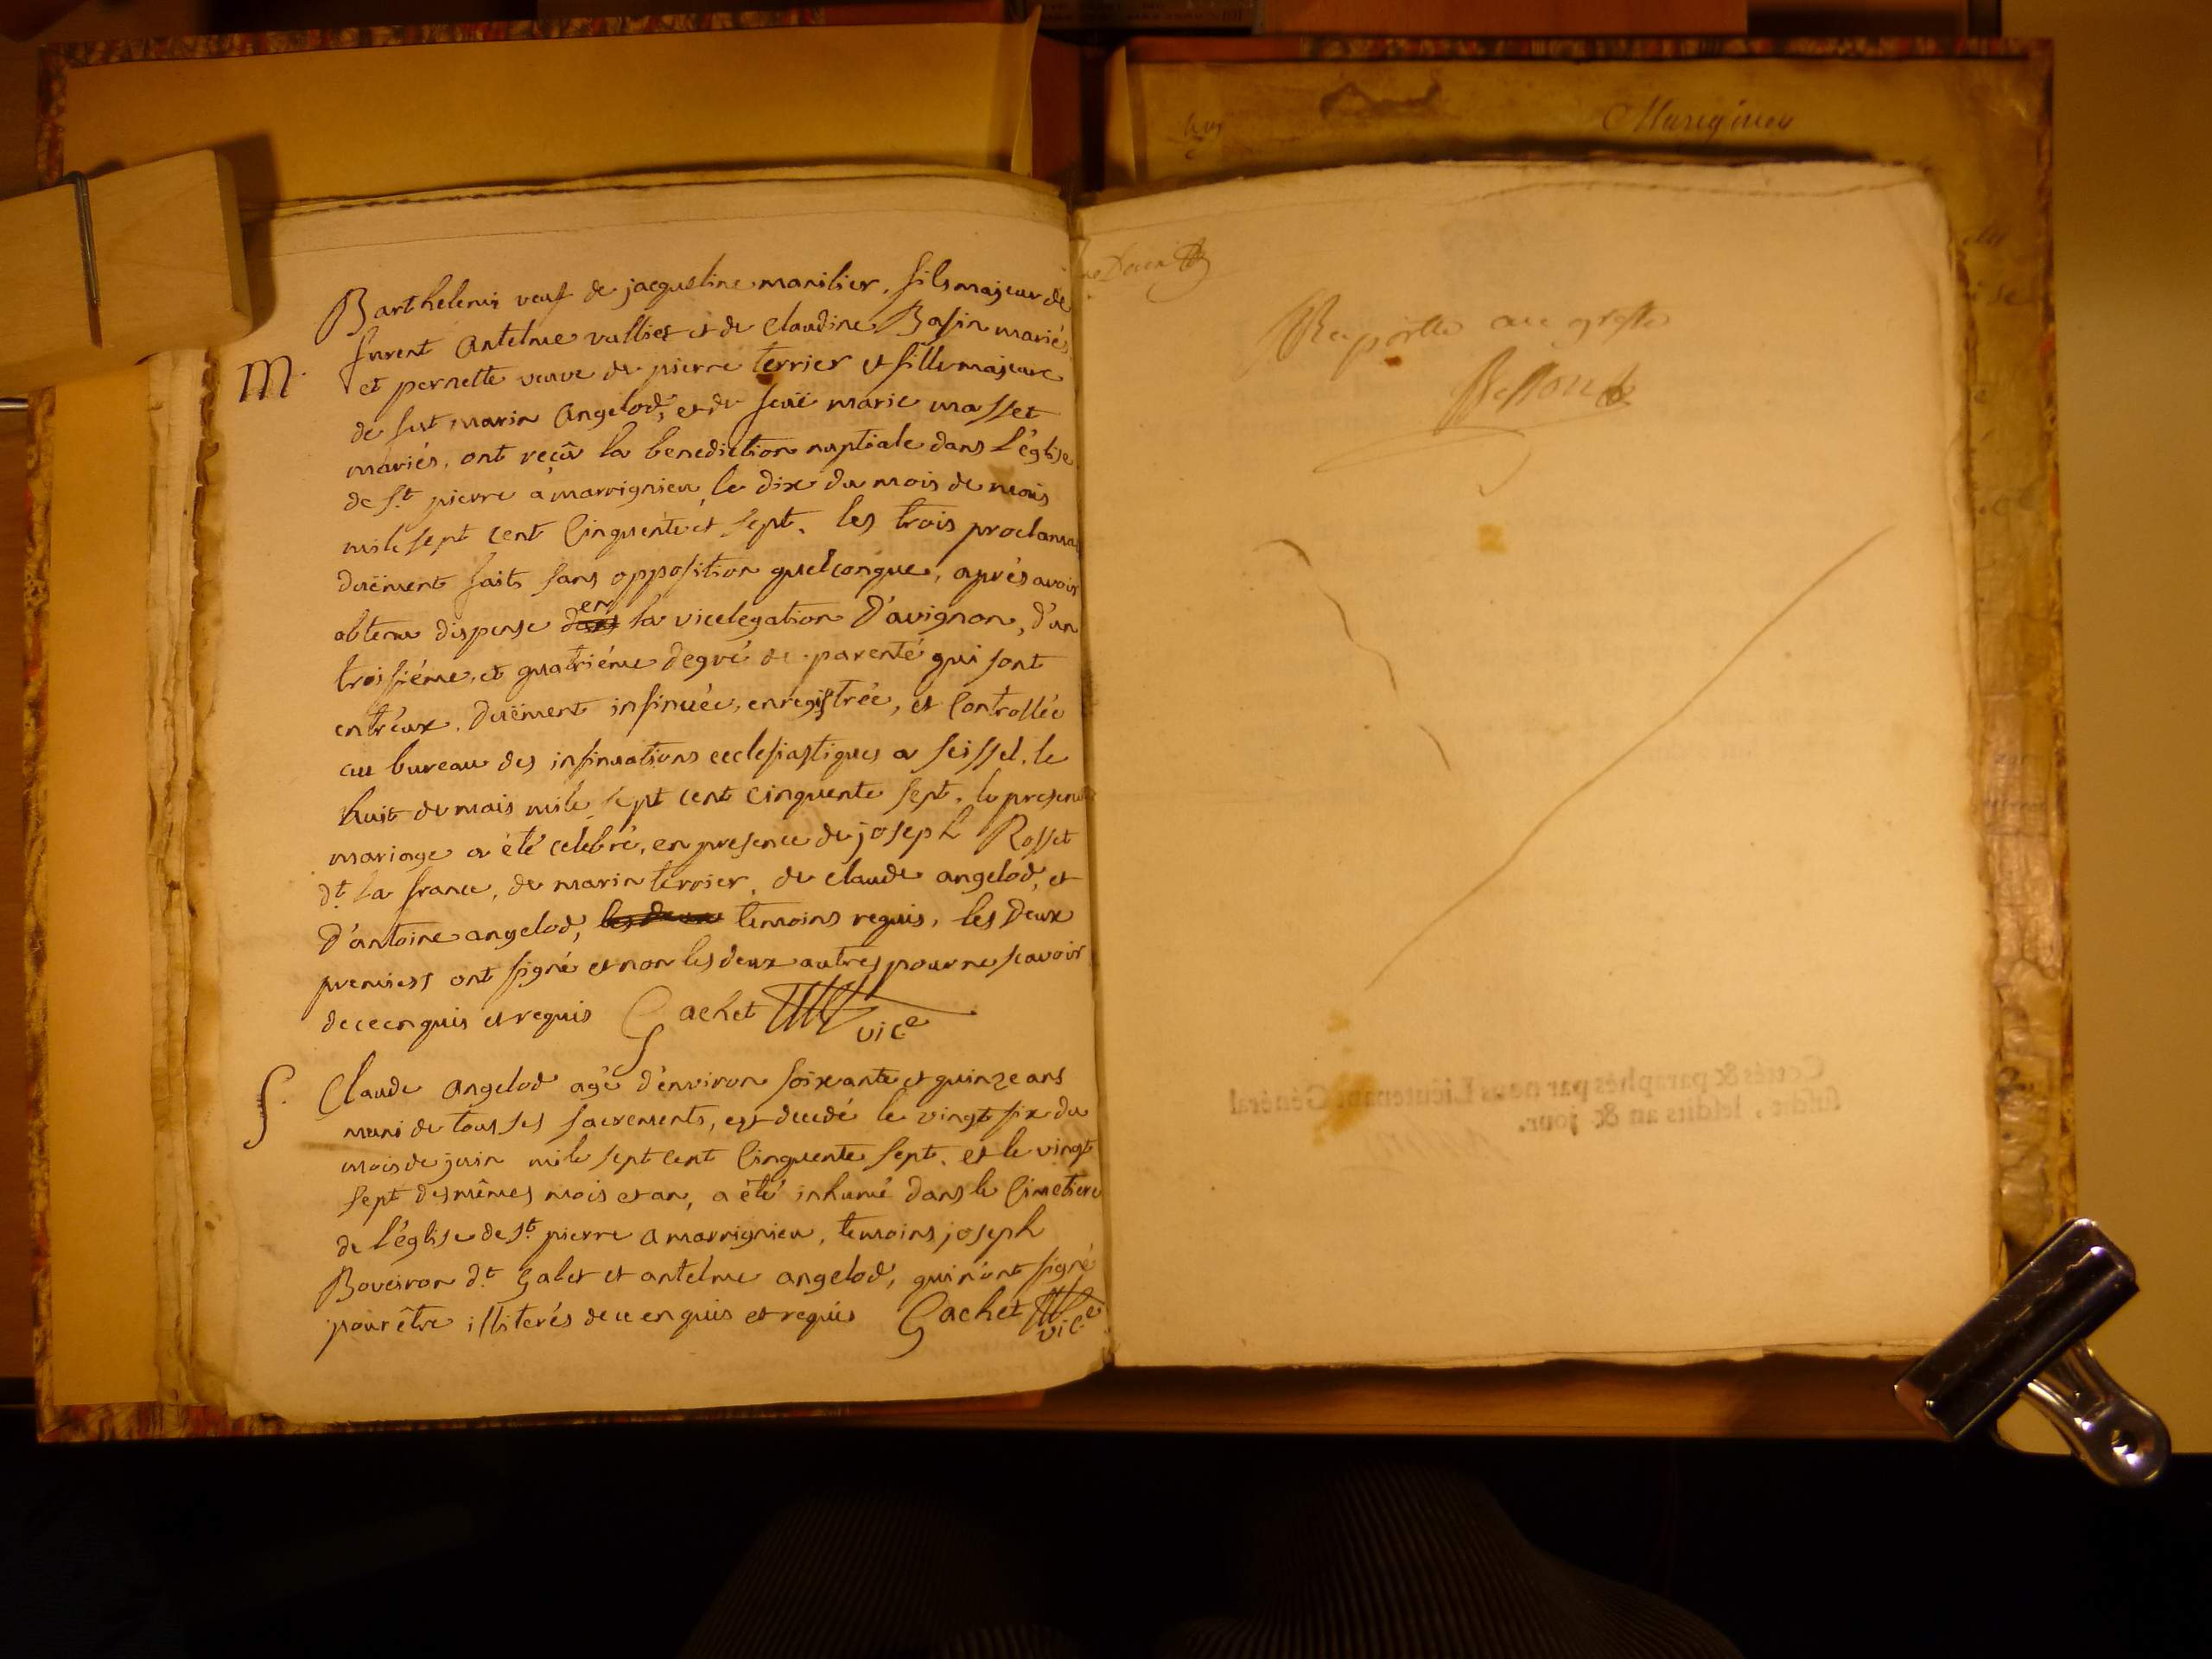 Barthelemi veuf de jacqueline manilier, fils majeur de
furent Antelme vallier et de Claudine Basin mariés
M.
et pernette veuve de pierre terrier et fille majeure
de fut marin Angelod, et de feuë marie masset
mariés, ont reçû la benediction nuptiale dans l'église
de St. pierre a marrignieu le dix du mois de mais
mile sept cent Cinquente et sept. les trois proclama
duëment faits sans opposition quelconque, après avoir
obtenu dispense en la vicelegation D'avignon, d'un
troisième, et quatrième degré de parenté qui sont
entr'eux. Duëment insinuée, enregistrée, et Controllée
au bureau des insinuations ecclesiastiques a seissel, le
huit de mais mile sept cent cinquente sept. le present
mariage a été celebré, en presence de joseph Rosset
dt. la france, de marin terrier, de claude angelod, et
D'antoine angelod, temoins requis, les Deux
premiers ont signé et non les deux autres pour ne scavoir
de ce enquis et requis Gachet vice
S. Claude Angelod agé d'environ soixante et quinze ans
muni de tous ses sacrements, est decedé le vingt six du
mois de juin mile sept cent Cinquente sept. et le vingt
sept des mêmes mois et an, a été inhumé dans le Cimetiere
de l'église de St. pierre a marrignieu, temoins joseph
Boveiron dt. Galet et antelme angelod, qui n'ont signé
pour être illiterés de ce enquis et requis Gachet vice
Raportté au greffe
Cottés & paraphés par nous Lieutenant Général
susdit, lesdits an & jour.